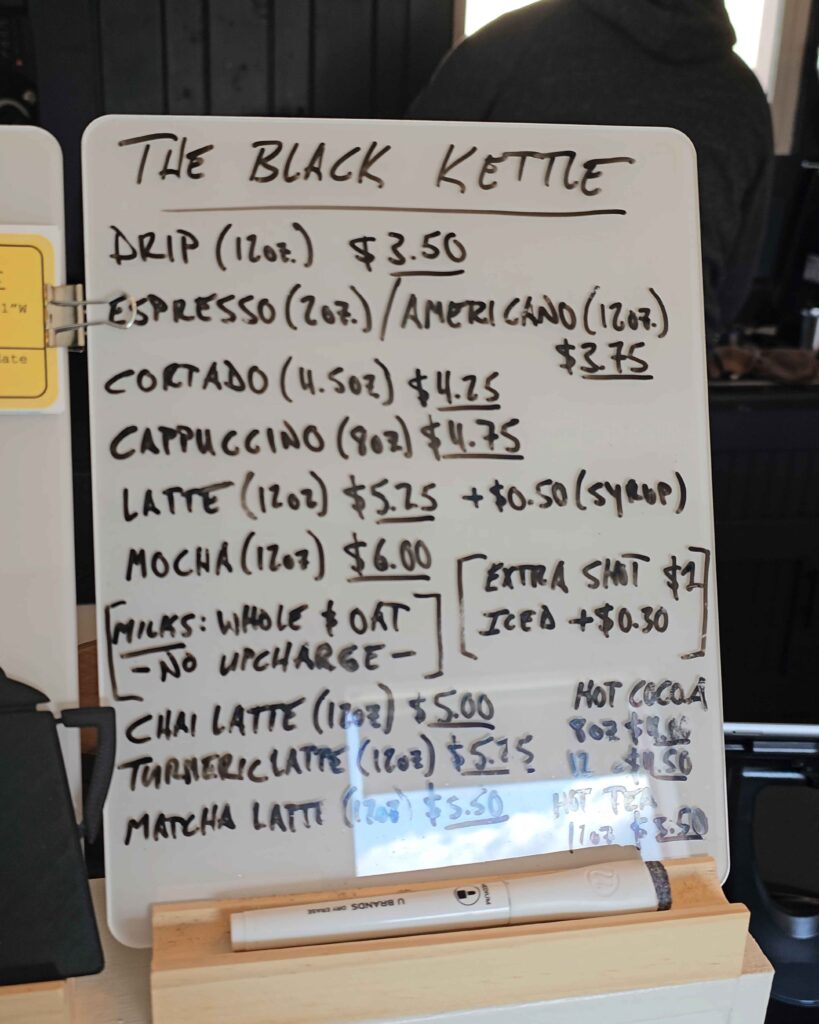 THE BLACK KETTLE
DRIP (12oz.) $3.50
ESPRESSO (2oz.) / AMERICANO (12oz.)
$3.75
CORTADO (4.5oz) $4.25
CAPPUCCINO (8oz) $4.75
LATTE (12oz) $5.25 +$0.50 (SYRUP)
MOCHA (12oz) $6.00
[EXTRA SHOT $1
ICED +$0.30]
[MILKS: WHOLE & OAT
-NO UPCHARGE-]
CHAI LATTE (12oz) $5.00
TURMERIC LATTE (12oz) $5.25
MATCHA LATTE (12oz) $5.50
HOT COCOA
8oz
12 $4.50
HOT TEA
12oz $3.50
U BRANDS DRY ERASE
MEDIUM
1"W
ate